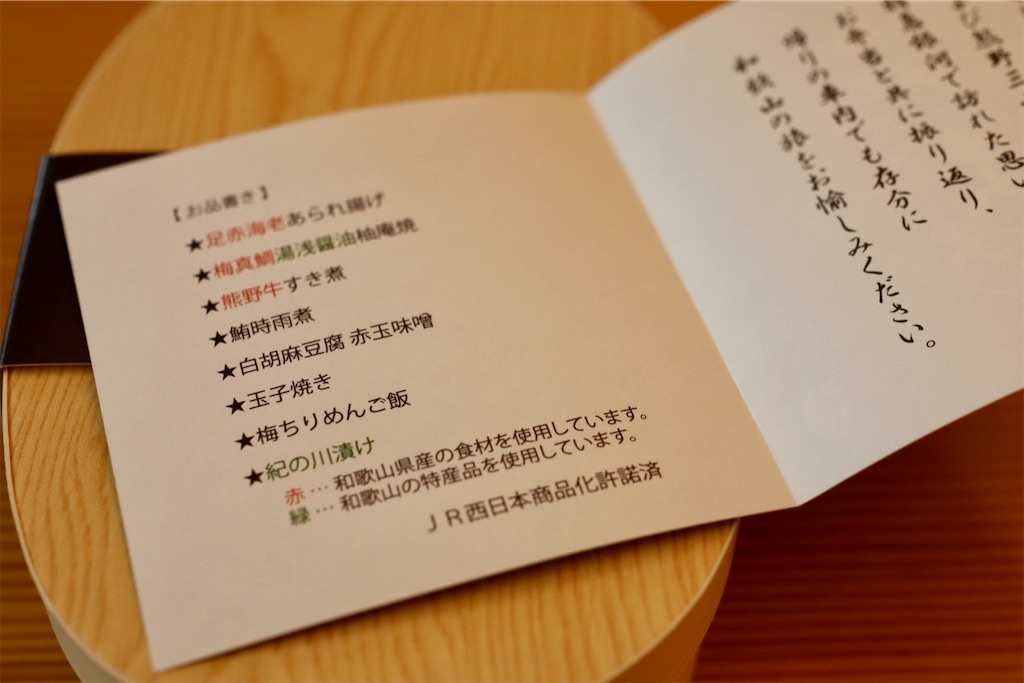 【お品書き】
★足赤海老あられ揚げ
★梅真鯛湯浅醤油柚庵焼
★熊野牛すき煮
★鮪時雨煮
★白胡麻豆腐 赤玉味噌
★玉子焼き
★梅ちりめんご飯
★紀の川漬け
赤 … 和歌山県産の食材を使用しています。
緑 … 和歌山の特産品を使用しています。
ＪＲ西日本商品化許諾済
び熊野三
急銀河で訪れた思い
お弁当と共に振り返り、
帰りの車内でも存分に
和歌山の旅をお愉しみください。